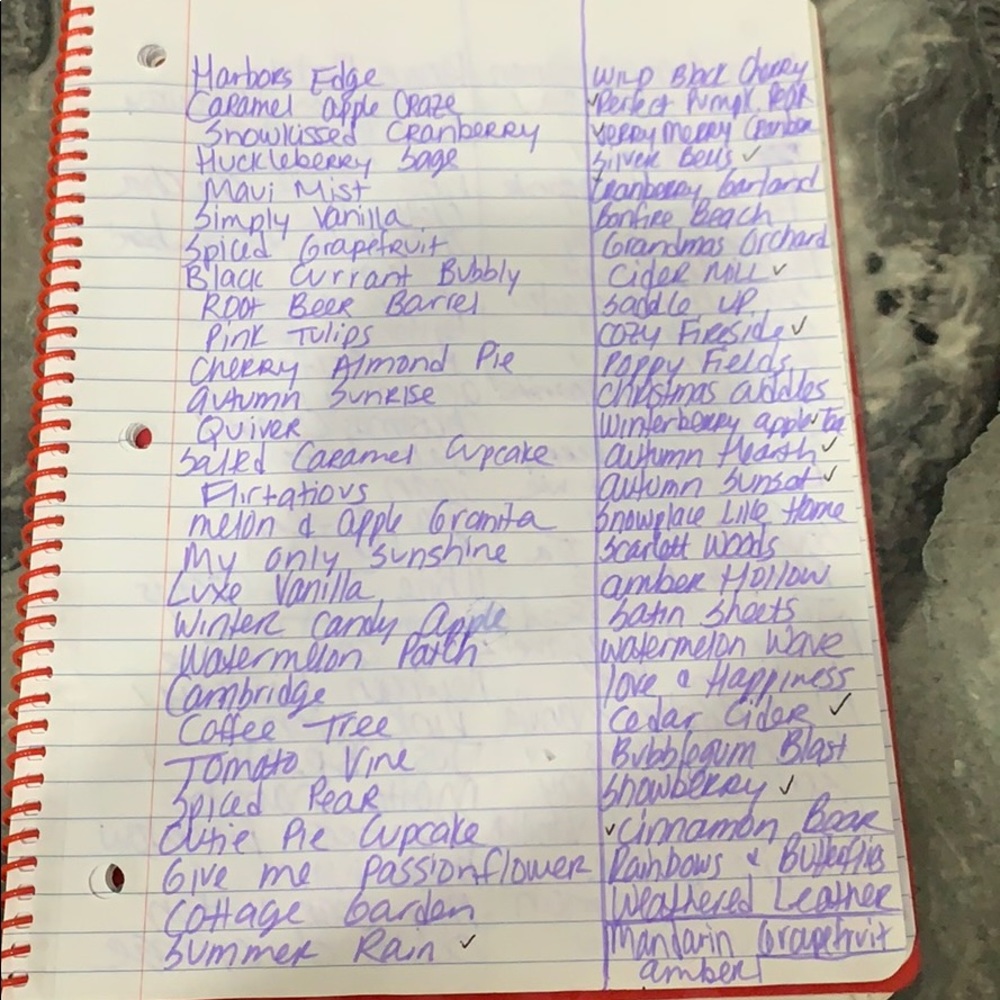 Harbors Edge
Caramel apple Craze
Snowkissed Cranberry
Huckleberry Sage
Maui Mist
Simply Vanilla
Spiced Grapefruit
Black Currant Bubbly
Root Beer Barrel
Pink Tulips
Cherry Almond Pie
autumn Sunrise
Quiver
Salted Caramel Cupcake
Flirtatious
melon & apple Granita
My only Sunshine
Luxe Vanilla
Winter Candy Apple
Watermelon Patch
Cambridge
Coffee Tree
Tomato Vine
Spiced Pear
Cutie Pie Cupcake
Give me Passionflower
Cottage Garden
Summer Rain ✓
Wild Black Cherry
✓Perfect Pumpk. Pear
✓Verry Merry Cranber
Silver Bells ✓
Cranberry Garland
Bonfire Beach
Grandmas Orchard
Cider Mill ✓
Saddle up
Cozy Fireside ✓
Poppy Fields
Christmas Cuddles
Winterberry apple Tar
autumn Hearth ✓
autumn Sunset ✓
Snowplace Like Home
Scarlett Woods
amber Hollow
Satin Sheets
Watermelon Wave
love & Happiness
Cedar Cider ✓
Bubblegum Blast
Snowberry ✓
✓Cinnamon Bear
Rainbows & Butterflies
Weathered Leather
Mandarin Grapefruit
amber